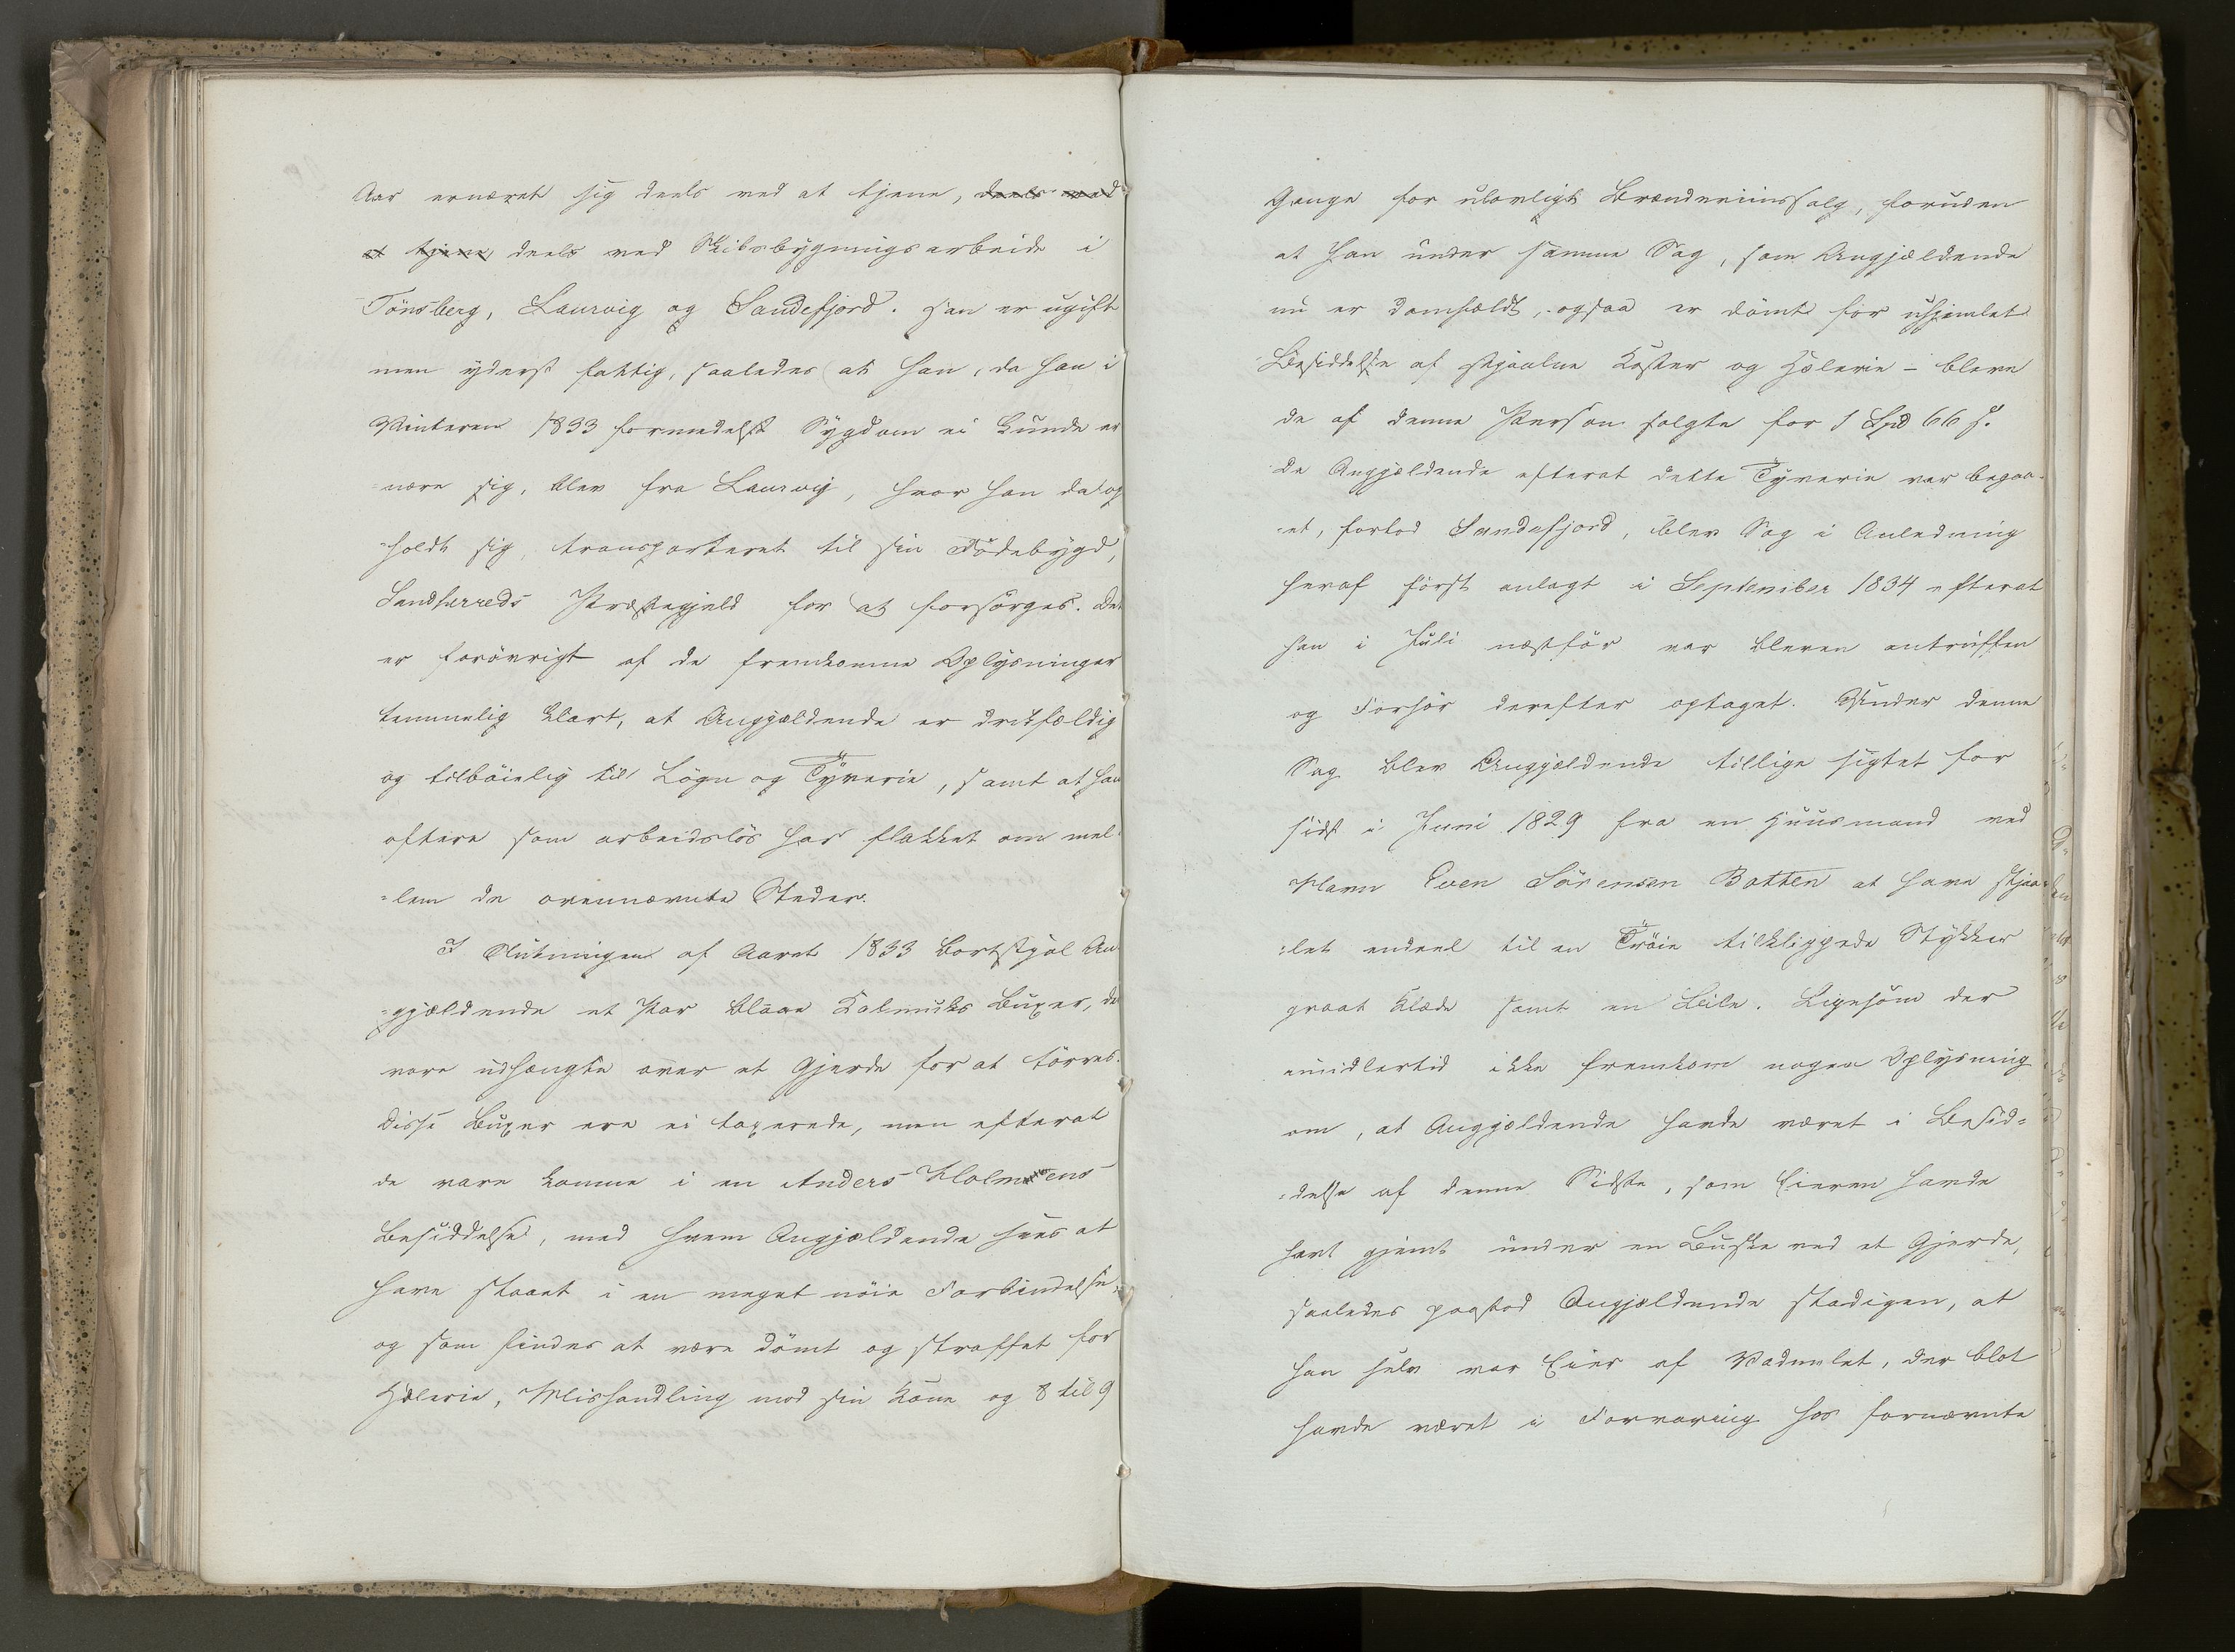 Aar ernæret sig deels ved at tjene, deels ved
at tjene, deels ved Skibsbygningsarbeide i
Tönsberg, Laurvig og Sandefjord. Han er ugift
men yderst fattig, saaledes at han, da han i
Vinteren 1833 formedelst Sygdom ei kunde er
=nære sig, blev fra Laurvig, hvor han da op
=holdt sig, transporteret til sin Födebygd,
Sandherreds Præstegjeld for at forsörges. Det
er forövrigt af de fremkomne Oplysninger
temmelig klart, at Angjældende er drikfældig
og tilböielig til Lögn og Tyverie, samt at han
oftere som arbeidslös har flakket om mel
=lem de ovennævnte Steder.
I Slutningen af Aaret 1833 bortstjal An
=gjældende et Par blaae Kalmuks Buxer, der
vare udhængte over et Gjerde for at törres.
Disse Buxer ere ei taxerede, men efterat
de vare komne i en Anders Holmsens
Besiddelse, med hvem Angjældende sees at
have staaet i en meget nöie Forbindelse,
og som findes at være dömt og straffet for
Hælerie, Mishandling mod sin Kone og 8 til 9
Gange for ulovligt Brændeviinssalg, foruden
at han under samme Sag, som Angjældende
nu er domfældt, ogsaa er dömt for uhjemlet
Besiddelse af stjaalne Koster og Hælerie - bleve
de af denne Person solgte for 1 Spd 66 s.
Da Angjældende efterat dette Tyverie var begaa-
=et, forlod Sandefjord, blev Sag i Anledning
heraf först anlagt i September 1834 efterat
han i Juli næstför var bleven antruffen
og Forhör derefter optaget. Under denne
Sag blev Angjældende tillige sigtet for
sidst i Juni 1829 fra en Huusmand ved
Navn Even Sörensen Botten at have stjaa-
=let endeel til en Tröie tilklippede Stykker
graat Klæde samt en Biile. Ligesom der
imidlertid ikke fremkom nogen Oplysning
om, at Angjældende havde været i Besid=
=delse af denne Sidste, som Eieren havde
havt gjemt under en Buske ved et Gjerde,
saaledes paastod Angjældende stadigen, at
han selv var Eier af Vadmelet, der blot
havde været i Forvaring hos fornævnte